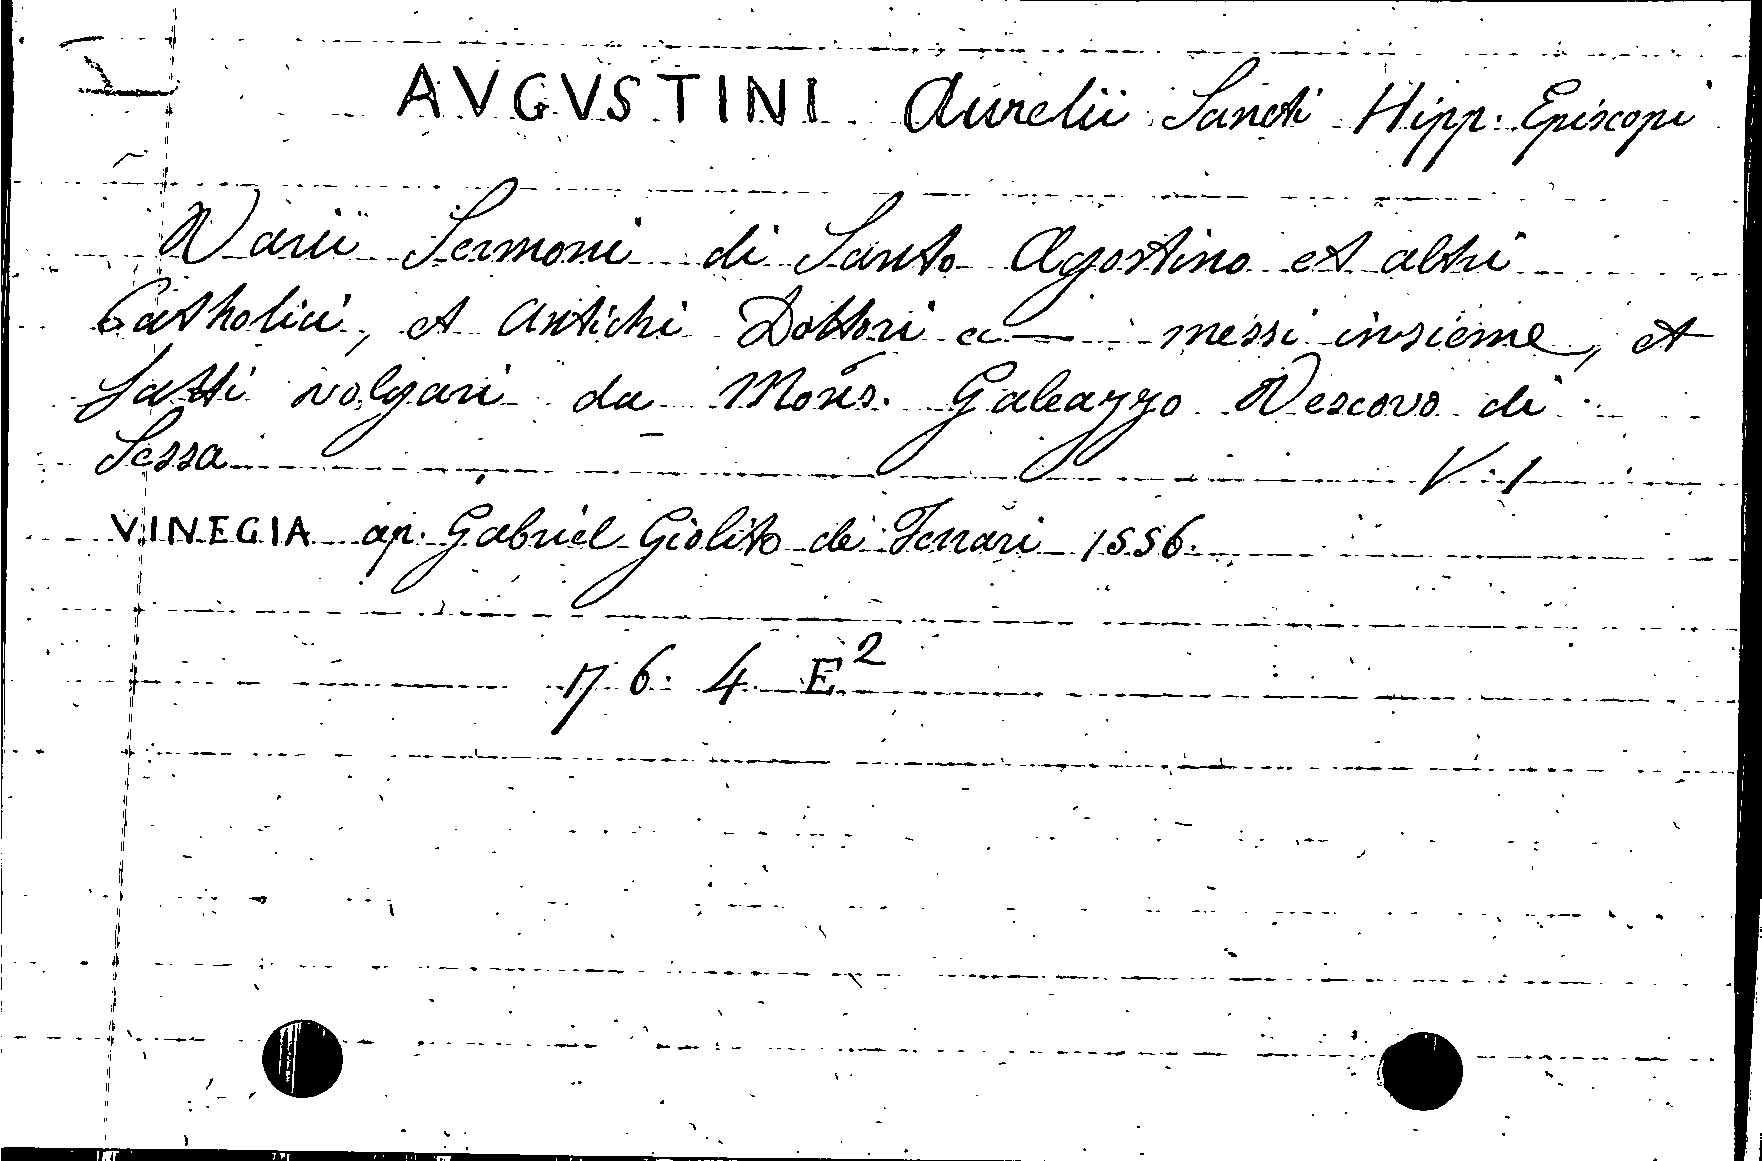 AVGVSTINI Aurelii Sancti Hipp. Episcopi
Varii Sermoni di Santo Agostino et altri
Catholici, et Antichi Dottori a — messi insieme, et
fatti volgari da Mons. Galeazzo Vescovo di
Sessa V. 1
VINEGIA ap. Gabriel Giolito de Ferrari 1556.
176. 4 E²